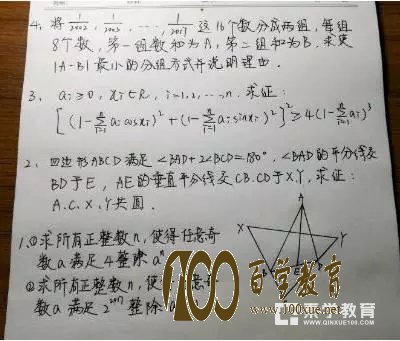 4. 将 1/2002, 1/2003, ..., 1/2017 这16个数分成两组,每组
8个数,第一组数和为A,第二组和为B. 求使
|A-B| 最小的分组方式并说明理由.
3. aᵢ≥0, xᵢ∈R, i=1,2,...,n. 求证:
[(1-∑ⁿᵢ₌₁ aᵢcosxᵢ)²+(1-∑ⁿᵢ₌₁ aᵢsinxᵢ)²]²≥4(1-∑ⁿᵢ₌₁ aᵢ)³
2. 四边形ABCD满足 ∠BAD+2∠BCD=180°, ∠BAD的平分线交
BD于E, AE的垂直平分线交CB.CD于X,Y, 求证:
A.C.X.Y共圆.
A
X
Y
1.①求所有正整数n, 使得任意奇
数a满足4整除aⁿ
②求所有正整数n, 使
数a满足2²⁰¹⁷整除
100百学教育
www.100xue.net
亲学教育
WWW.QINXUE100.COM